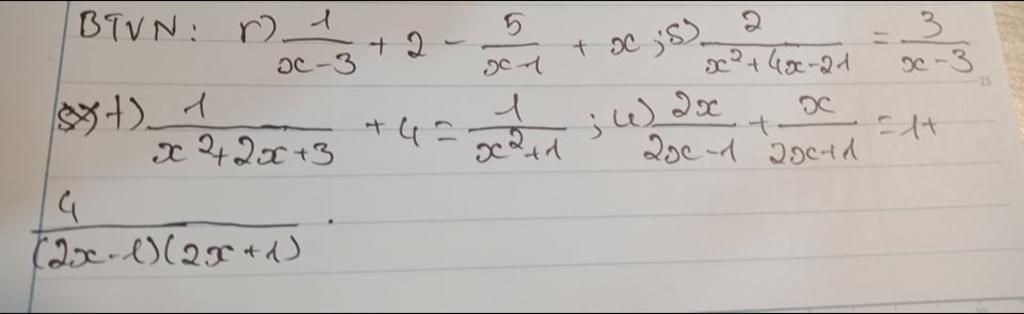 BTVN: r) 1/(x-3) + 2 - 5/(x-1) + x; s) 2/(x²+4x-21) = 3/(x-3)
t) 1/(x²+2x+3) + 4 = 1/(x²+1); u) 2x/(2x-1) + x/(2x+1) = 1+
4/((2x-1)(2x+1)).